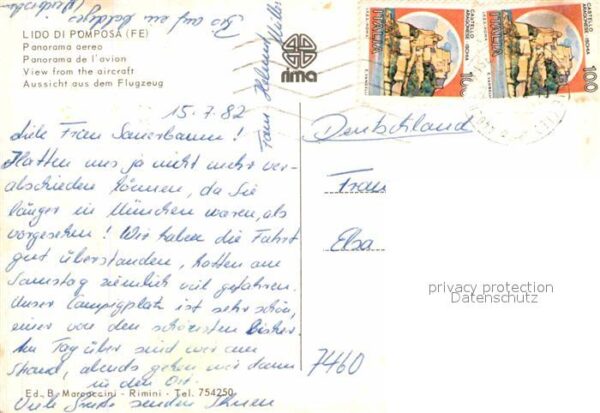 LIDO DI POMPOSA (FE)
Panorama aereo
Panorama de l'avion
View from the aircraft
Aussicht aus dem Flugzeug
rima
CASTELLO
ARAGONESE ISCHIA
ITALIA
100
CASTELLO
ARAGONESE ISCHIA
ITALIA
100
15.7.82
Liebe Frau Sauerbaum!
Hatten uns ja nicht mehr ver-
abschieden können, da Sie
länger in München waren, als
vorgesehen! Wir haben die Fahrt
gut überstanden, hatten am
Samstag ziemlich viel gefahren.
Unser Campigplatz ist sehr schön,
einer von den schönsten bisher.
Am Tag über sind wir am
Strand, abends gehen wir dann
in den Ort.
Viele Grüße senden Ihnen
Fam Helmut
Deutschland
Frau
Elsa
7460
privacy protection
Datenschutz
Ed. B. Marconcini - Rimini - Tel. 754250